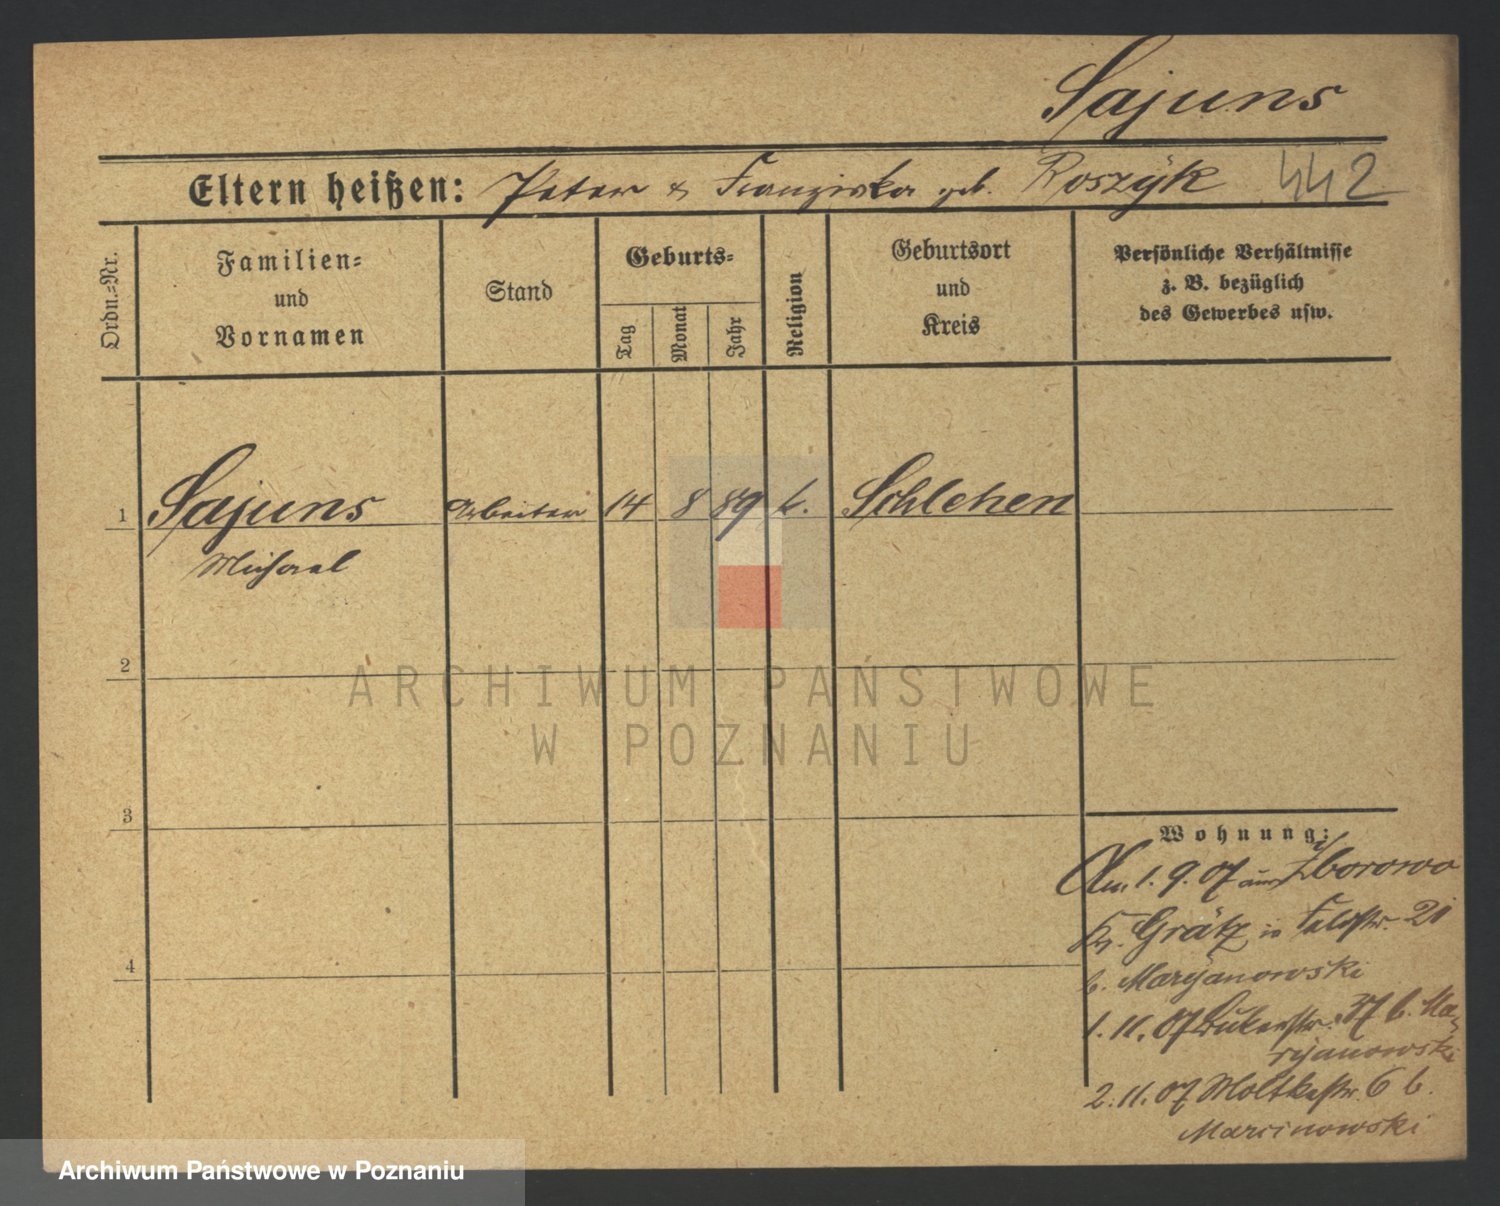 Sajuns
Eltern heißen: Peter & Franziska geb. Roszyk 442
Ordn.-Nr.
Familien-
und
Vornamen
Stand
Geburts-
Tag
Monat
Jahr
Religion
Geburtsort
und
Kreis
Persönliche Verhältnisse
z. B. bezüglich
des Gewerbes usw.
1 Sajuns Arbeiter 14 8 89 k. Schlehen
Michael
2
3
4
Wohnung:
Am 1. 9. 07 aus Zborowo
Kr. Grätz in Feldstr. 21
b. Maryanowski
1. 11. 07 37 b. Ma-
ryanowski
2. 11. 07 Moltkestr. 6 b.
Marcinowski
ARCHIWUM PAŃSTWOWE
W POZNANIU
Archiwum Państwowe w Poznaniu